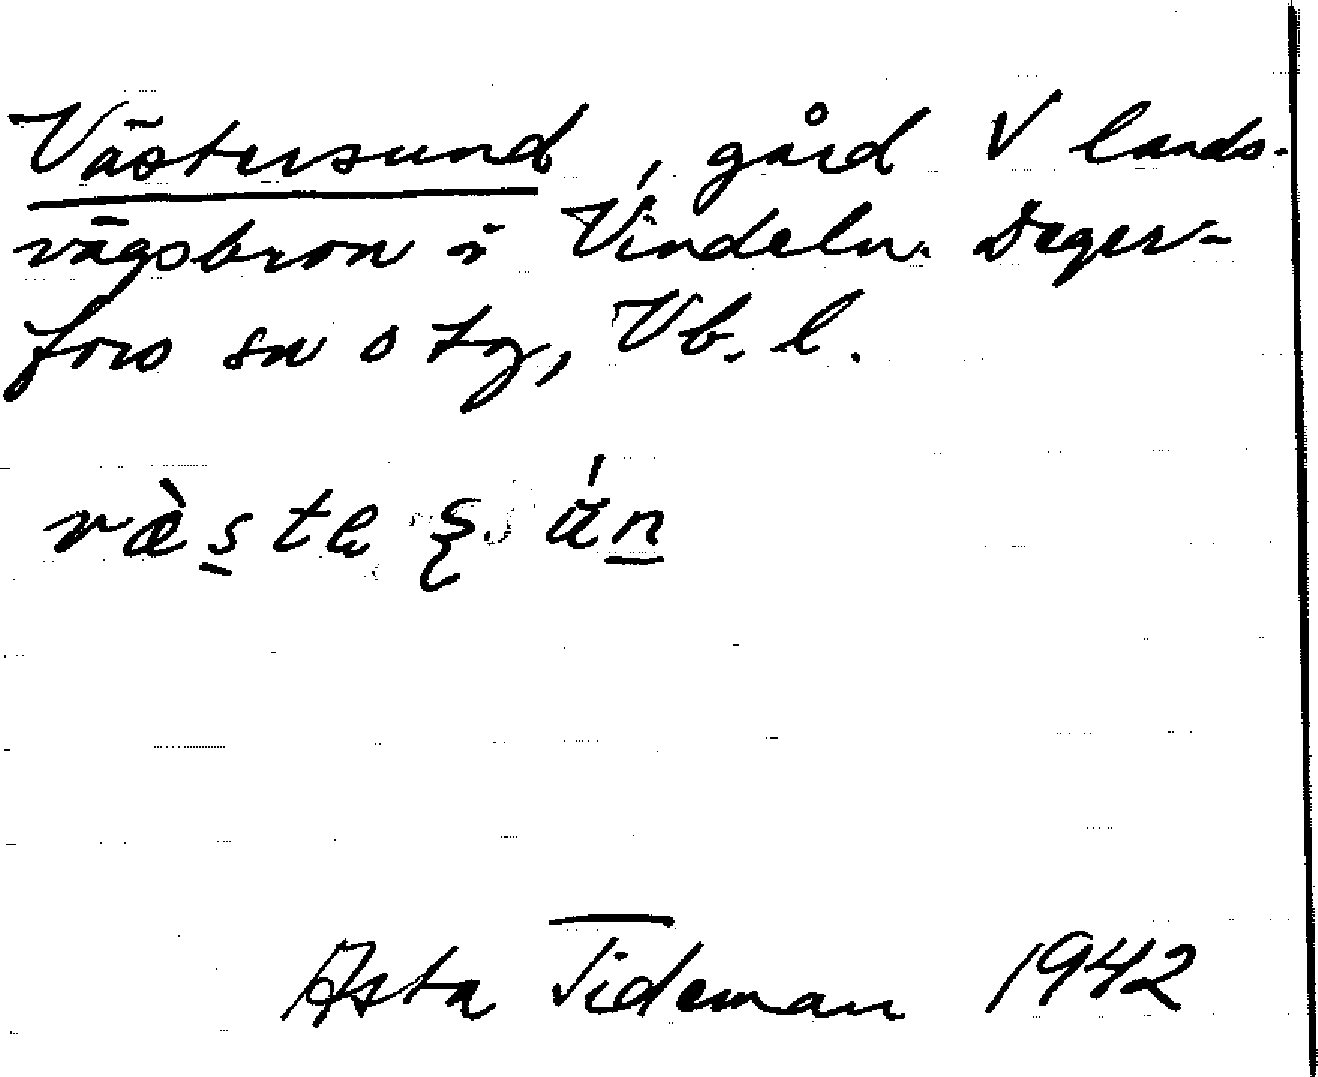 Västersund, gård V lands-
vägsbron i Vindeln. Deger-
fors sn o tg, Vb. l.
væ̀s̱te ʂún̲
Asta Tideman 1942